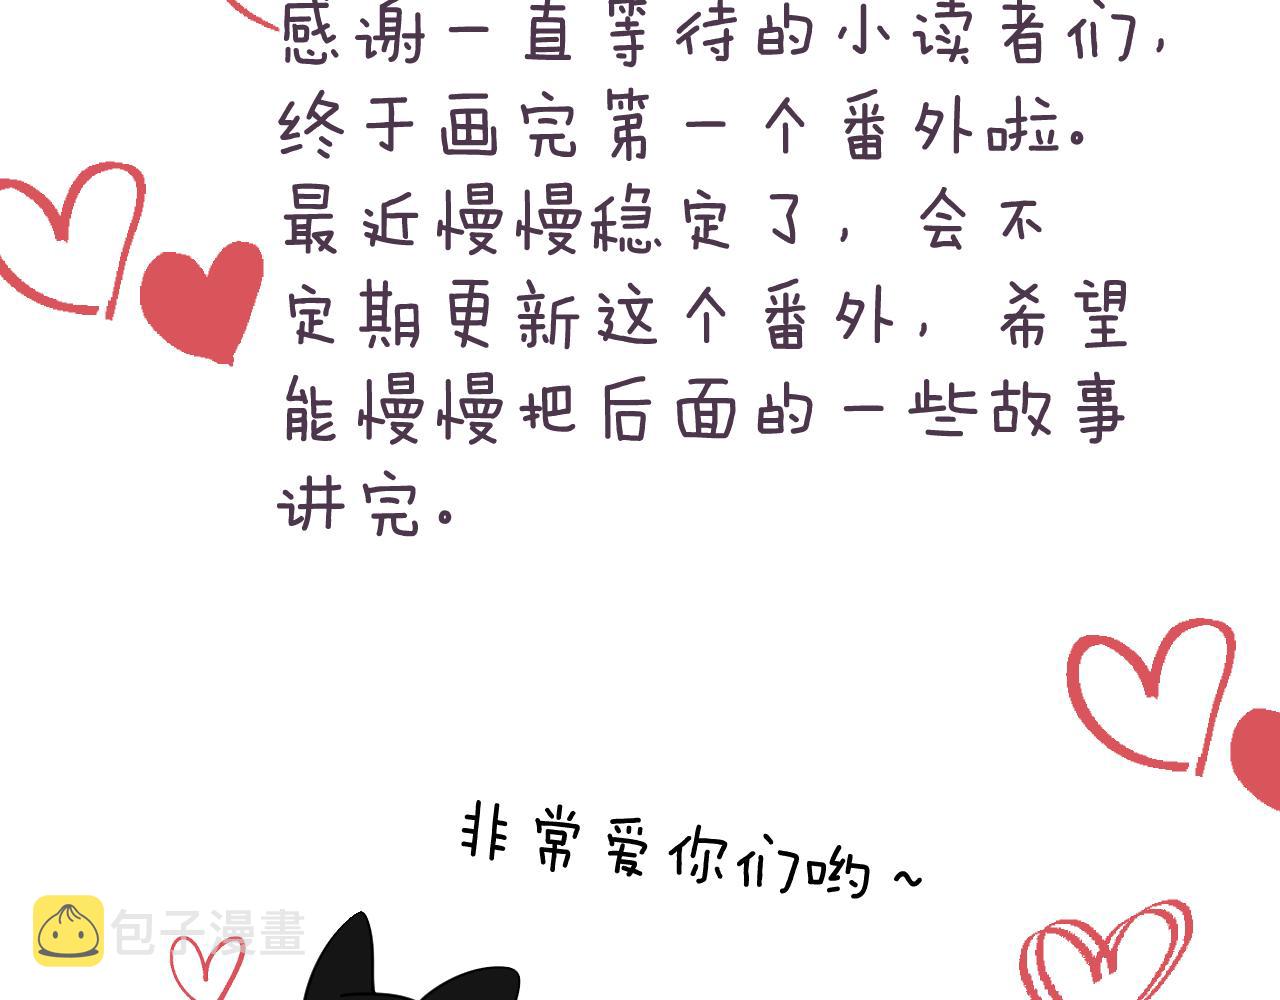 感谢一直等待的小读者们，
终于画完第一个番外啦。
最近慢慢稳定了，会不
定期更新这个番外，希望
能慢慢把后面的一些故事
讲完。
非常爱你们哟~
包子漫畫